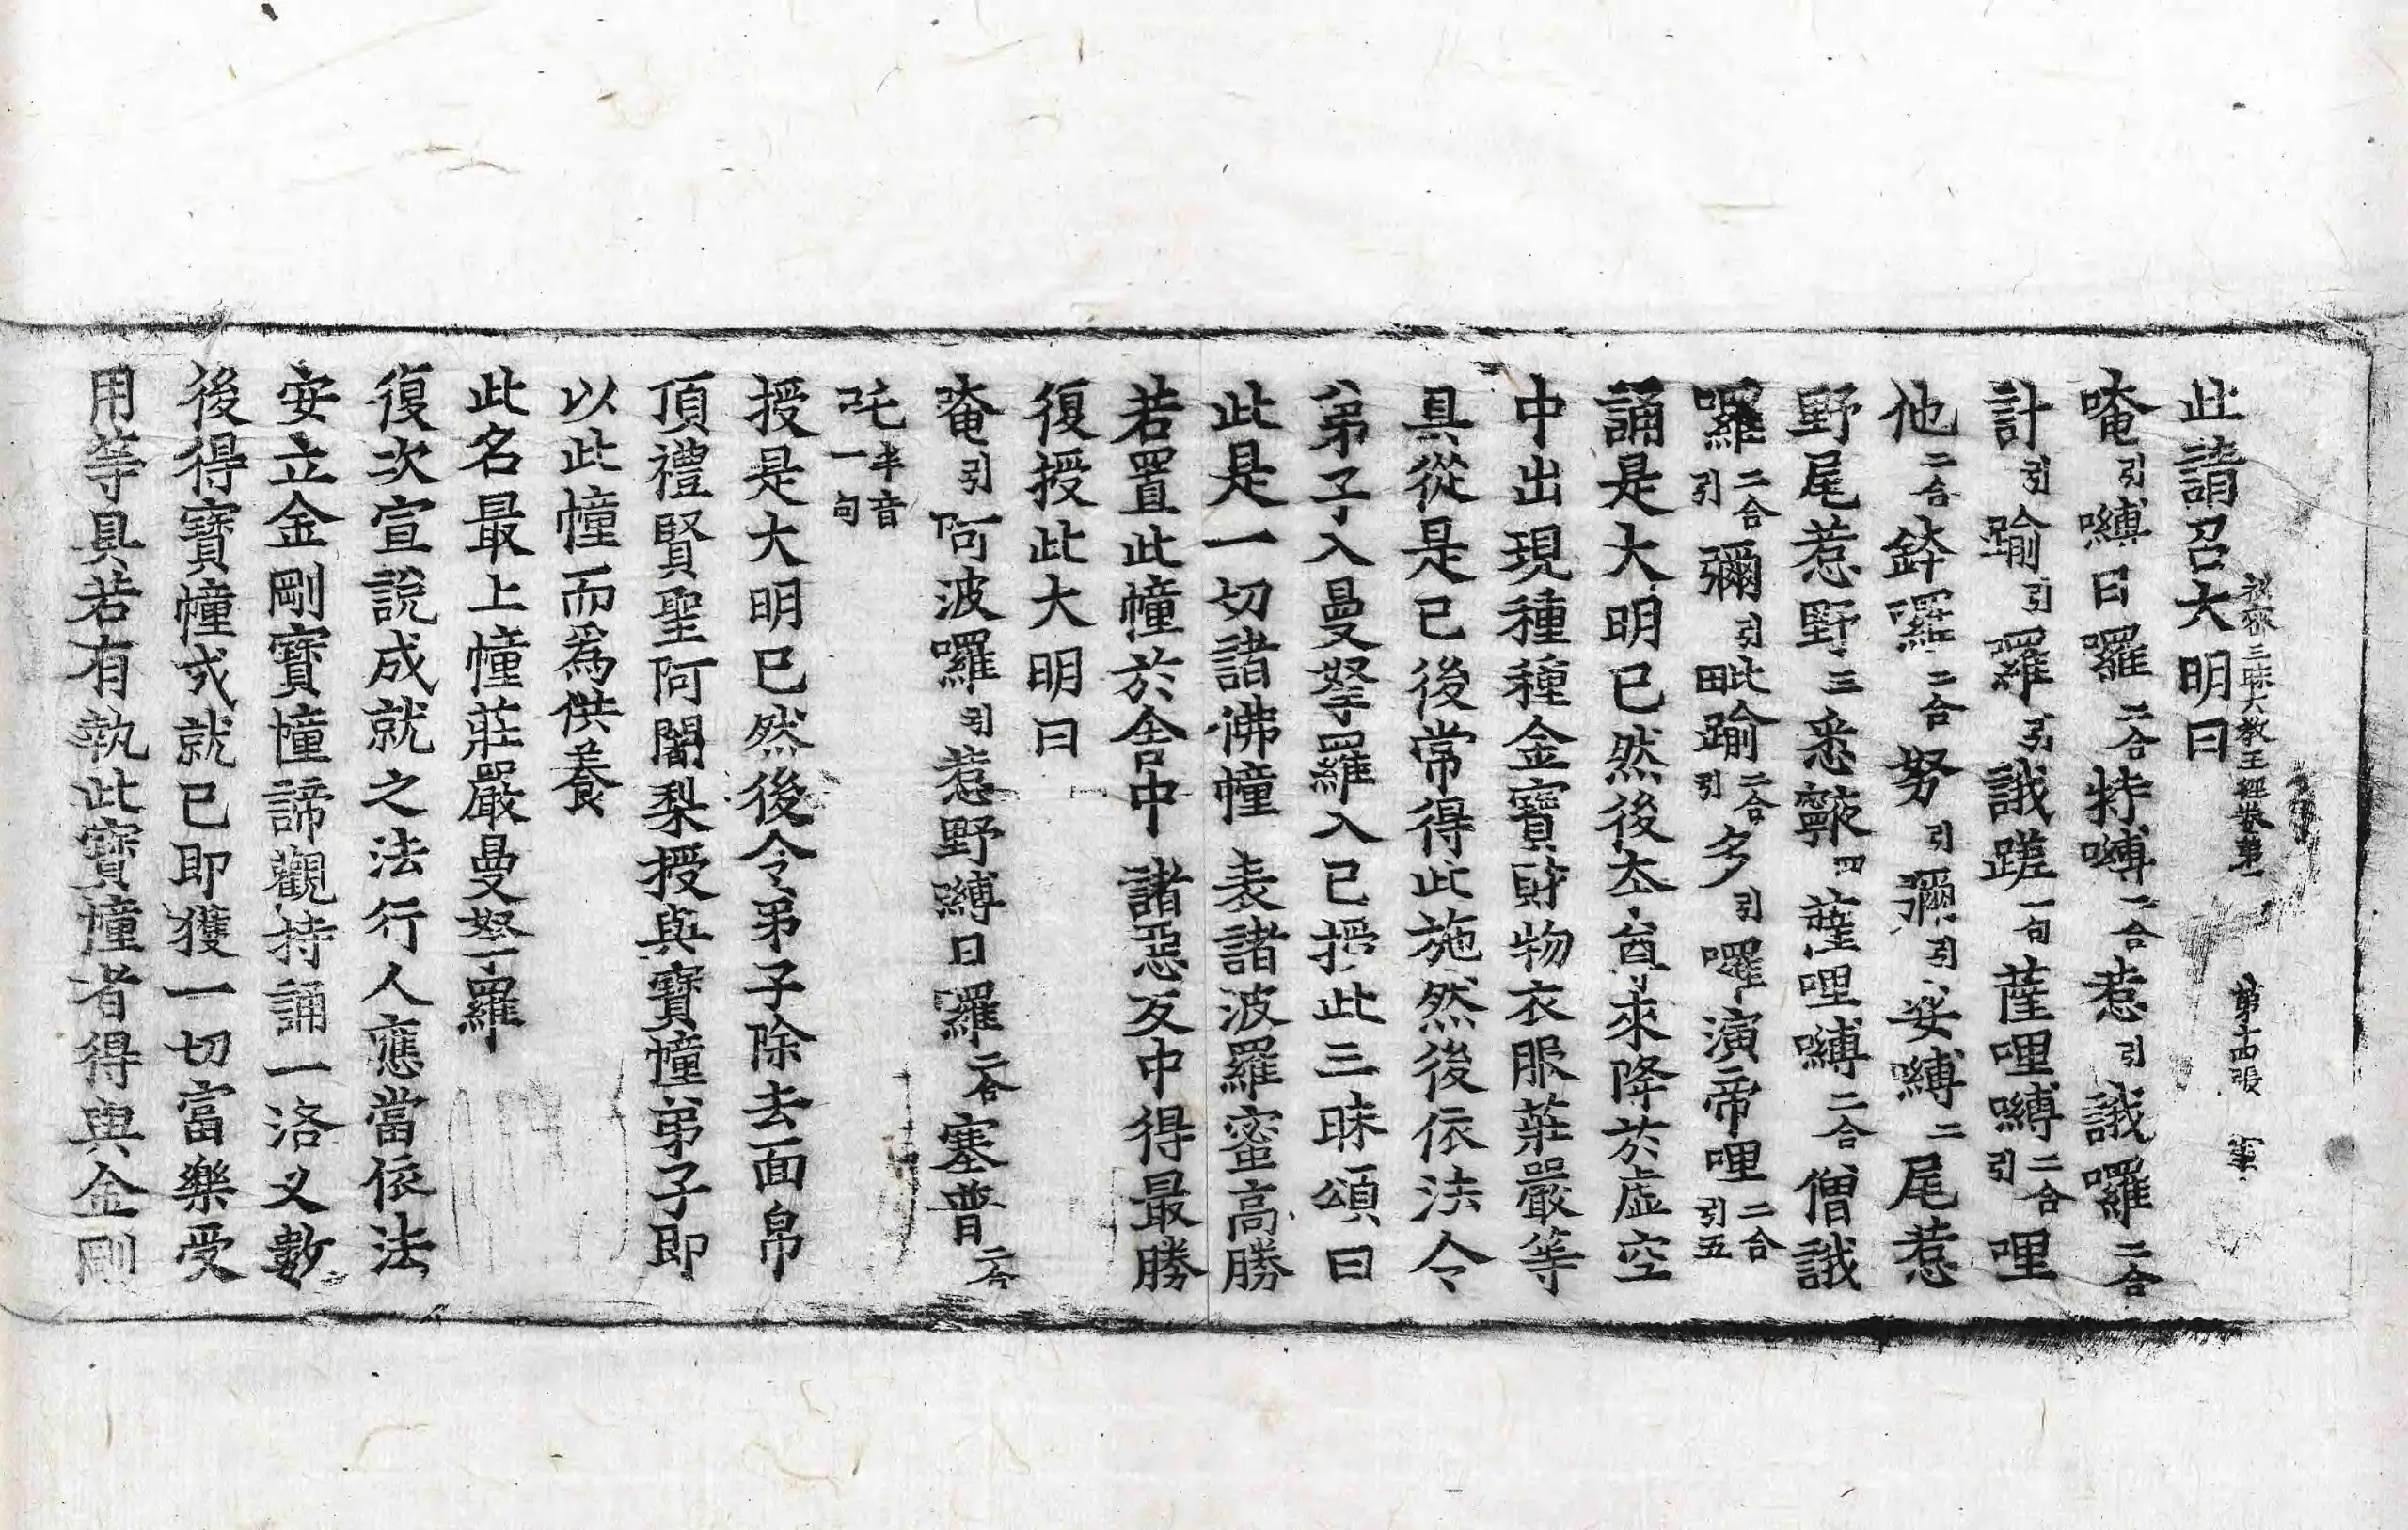 此請召大明曰
祕密三昧大教王經卷第一　第十四張　寧
唵引嚩日囉二合特嚩二合惹引誐囉二合
計引踰引囉引誐蹉一句薩哩嚩二合引哩
他二合鉢囉二合努引彌引娑嚩二尾惹
野尾惹野三悉𪘨四薩哩嚩二合僧誐
囉二合引彌引毗踰二合引多引囉演帝哩二合引五
誦是大明已然後本尊來降於虛空
中出現種種金寶財物衣服莊嚴等
具從是已後常得此施然後依法令
弟子入曼拏羅入已授此三昧頌曰
此是一切諸佛幢　表諸波羅蜜高勝
若置此幢於舍中　諸惡友中得最勝
復授此大明曰
唵引阿波囉引惹野嚩日囉二合塞普二合
吒半音一句
授是大明已然後令弟子除去面帛
頂禮賢聖阿闍梨授與寶幢弟子即
以此幢而爲供養
此名最上幢莊嚴曼拏羅
復次宣說成就之法行人應當依法
安立金剛寶幢諦觀持誦一洛叉數
後得寶幢成就已即獲一切富樂受
用等具若有執此寶幢者得與金剛